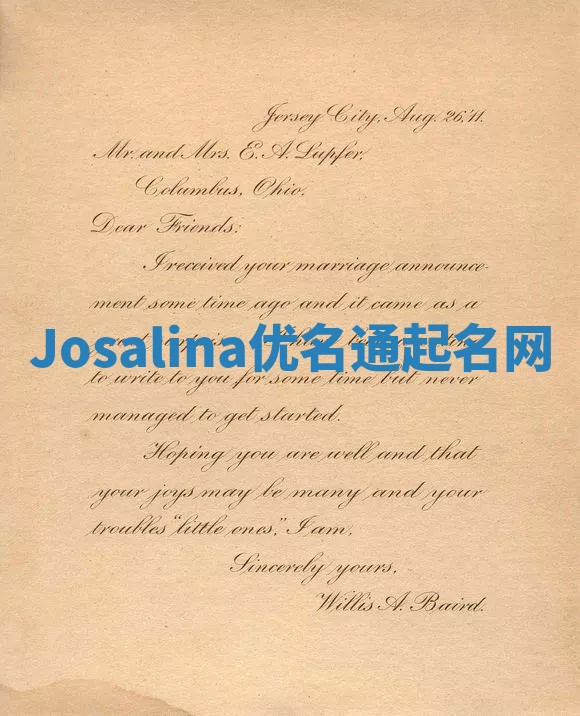 Jersey City, Aug. 26, '11.
Mr. and Mrs. E. A. Lupfer,
Columbus, Ohio.
Dear Friends:
I received your marriage announce-
ment some time ago and it came as a
Josalina优名通起名网
to write to you for some time but never
managed to get started.
Hoping you are well and that
your joys may be many and your
troubles "little ones," I am,
Sincerely yours,
Willis A. Baird.